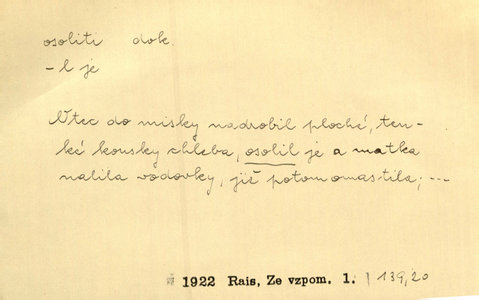 osoliti dok.
-l je
Otec do misky nadrobil ploché, ten-
ké kousky chleba, osolil je a matka
nalila vodovky, již potom omastila; ---
1922 Rais, Ze vzpom. 1. | 139,20